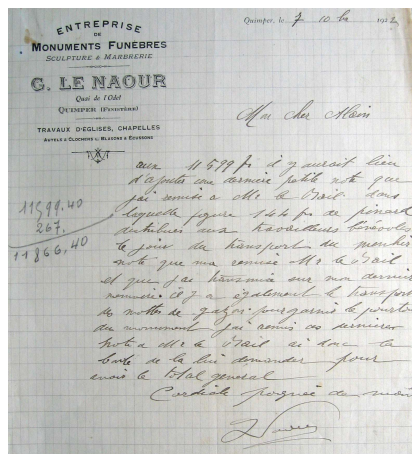 ENTREPRISE
DE
MONUMENTS FUNÈBRES
SCULPTURE & MARBRERIE
G. LE NAOUR
Quai de l'Odet
QUIMPER (FINISTÈRE)
TRAVAUX D'ÉGLISES, CHAPELLES
AUTELS & CLOCHERS BLASONS & ECUSSONS
Quimper, le 7 10 bre 192
Mon cher Alain
aux 11599 frs il y aurait lieu
d'ajouter une dernière petite note que
j'ai remise à Mr Le Bail dans
laquelle figure 144 frs de pinard
aux travailleurs bénévoles
le jour du transport du menhir
note que m'a remise Mr Le Bail
et que j'ai transmise sur mon dernier
il y a également le transport
de mottes de gazon pour garnir le pourtour
du monument j'ai remis ces dernières
note à Mr Le Bail ai donc la
bonté de la lui demander pour
avoir le total général
Cordiale poignée de main
11599.40
267.
11866,40